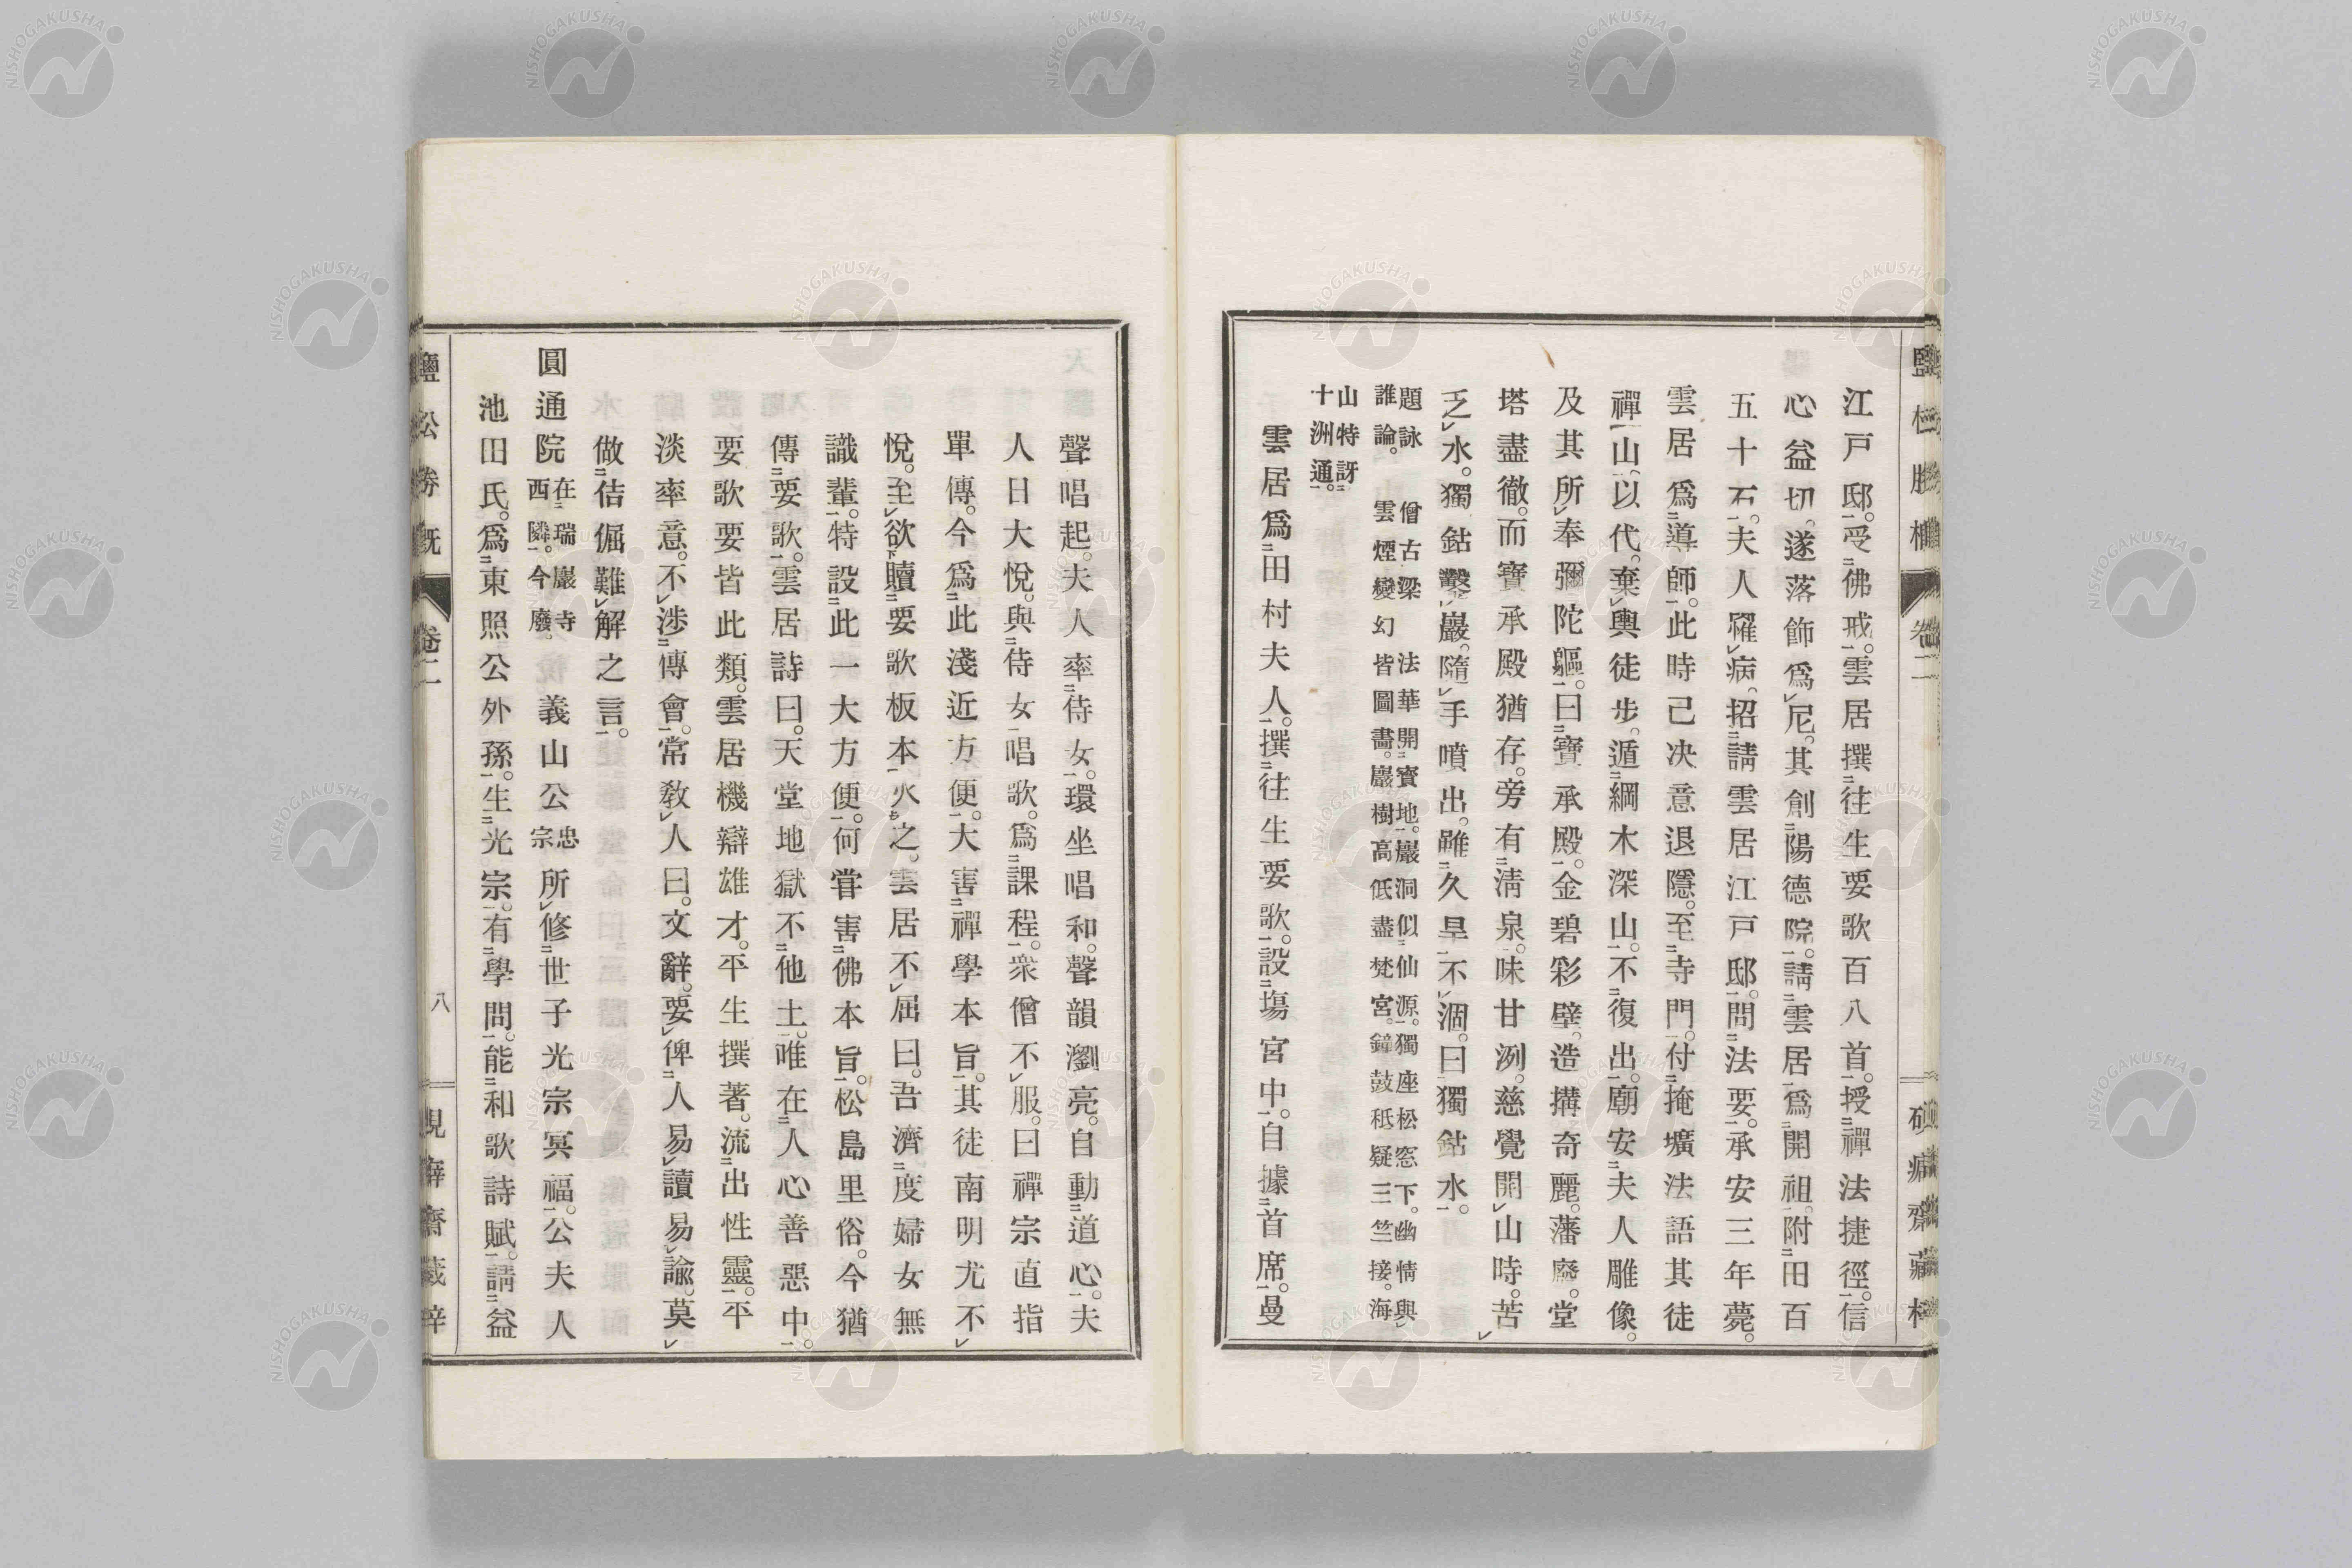 江戸邸。受佛戒。雲居撰往生要歌百八首。授禪法捷徑。信
心益切。遂落飾爲尼。其創陽德院。請雲居爲開祖。附田百
五十石。夫人罹病。招請雲居江戸邸。問法要。承安三年薨。
雲居爲導師。此時己决意退隱。至寺門。付掩壙法語其徒
禪山。以代。棄輿徒步。遁綱木深山。不復出。廟安夫人雕像。
及其所奉彌陀軀。曰寶承殿。金碧彩壁。造搆奇麗。藩廢。堂
塔盡徹。而寶承殿猶存。旁有淸泉。味甘洌。慈覺開山時。苦
乏水。獨鈷鑿巖。隨手噴出。雖久旱不涸。曰獨鈷水。
題詠 僧古梁 法華開寶地。巖洞似仙源。獨座松窓下。幽情與
誰論。 雲煙變幻皆圖畵。巖樹高低盡梵宮。鐘鼓秪疑三竺接。海
山特訝
十洲通。
雲居爲田村夫人。撰往生要歌。設塲宮中。自據首席。曼
聲唱起。夫人率侍女。環坐唱和。聲韻瀏亮。自動道心。夫
人日大悅。與侍女唱歌。爲課程。衆僧不服。曰禪宗直指
單傳。今爲此淺近方便。大害禪學本旨。其徒南明尤不
悅。至欲贖要歌板本火之。雲居不屈曰。吾濟度婦女無
識輩。特設此一大方便。何甞害佛本旨。松島里俗。今猶
傳要歌。雲居詩曰。天堂地獄不他土。唯在人心善惡中。
要歌要皆此類。雲居機辯雄才。平生撰著。流出性靈。平
淡率意。不涉傳會。常敎人曰。文辭。要俾人易讀易諭。莫
做佶倔難解之言。
圓通院 在瑞巖寺西隣。今廢。 義山公 忠宗 所修世子光宗冥福。公夫人
池田氏。爲東照公外孫。生光宗。有學問。能和歌詩賦。請益
鹽松勝槪 卷二 八 硯癖齋藏梓